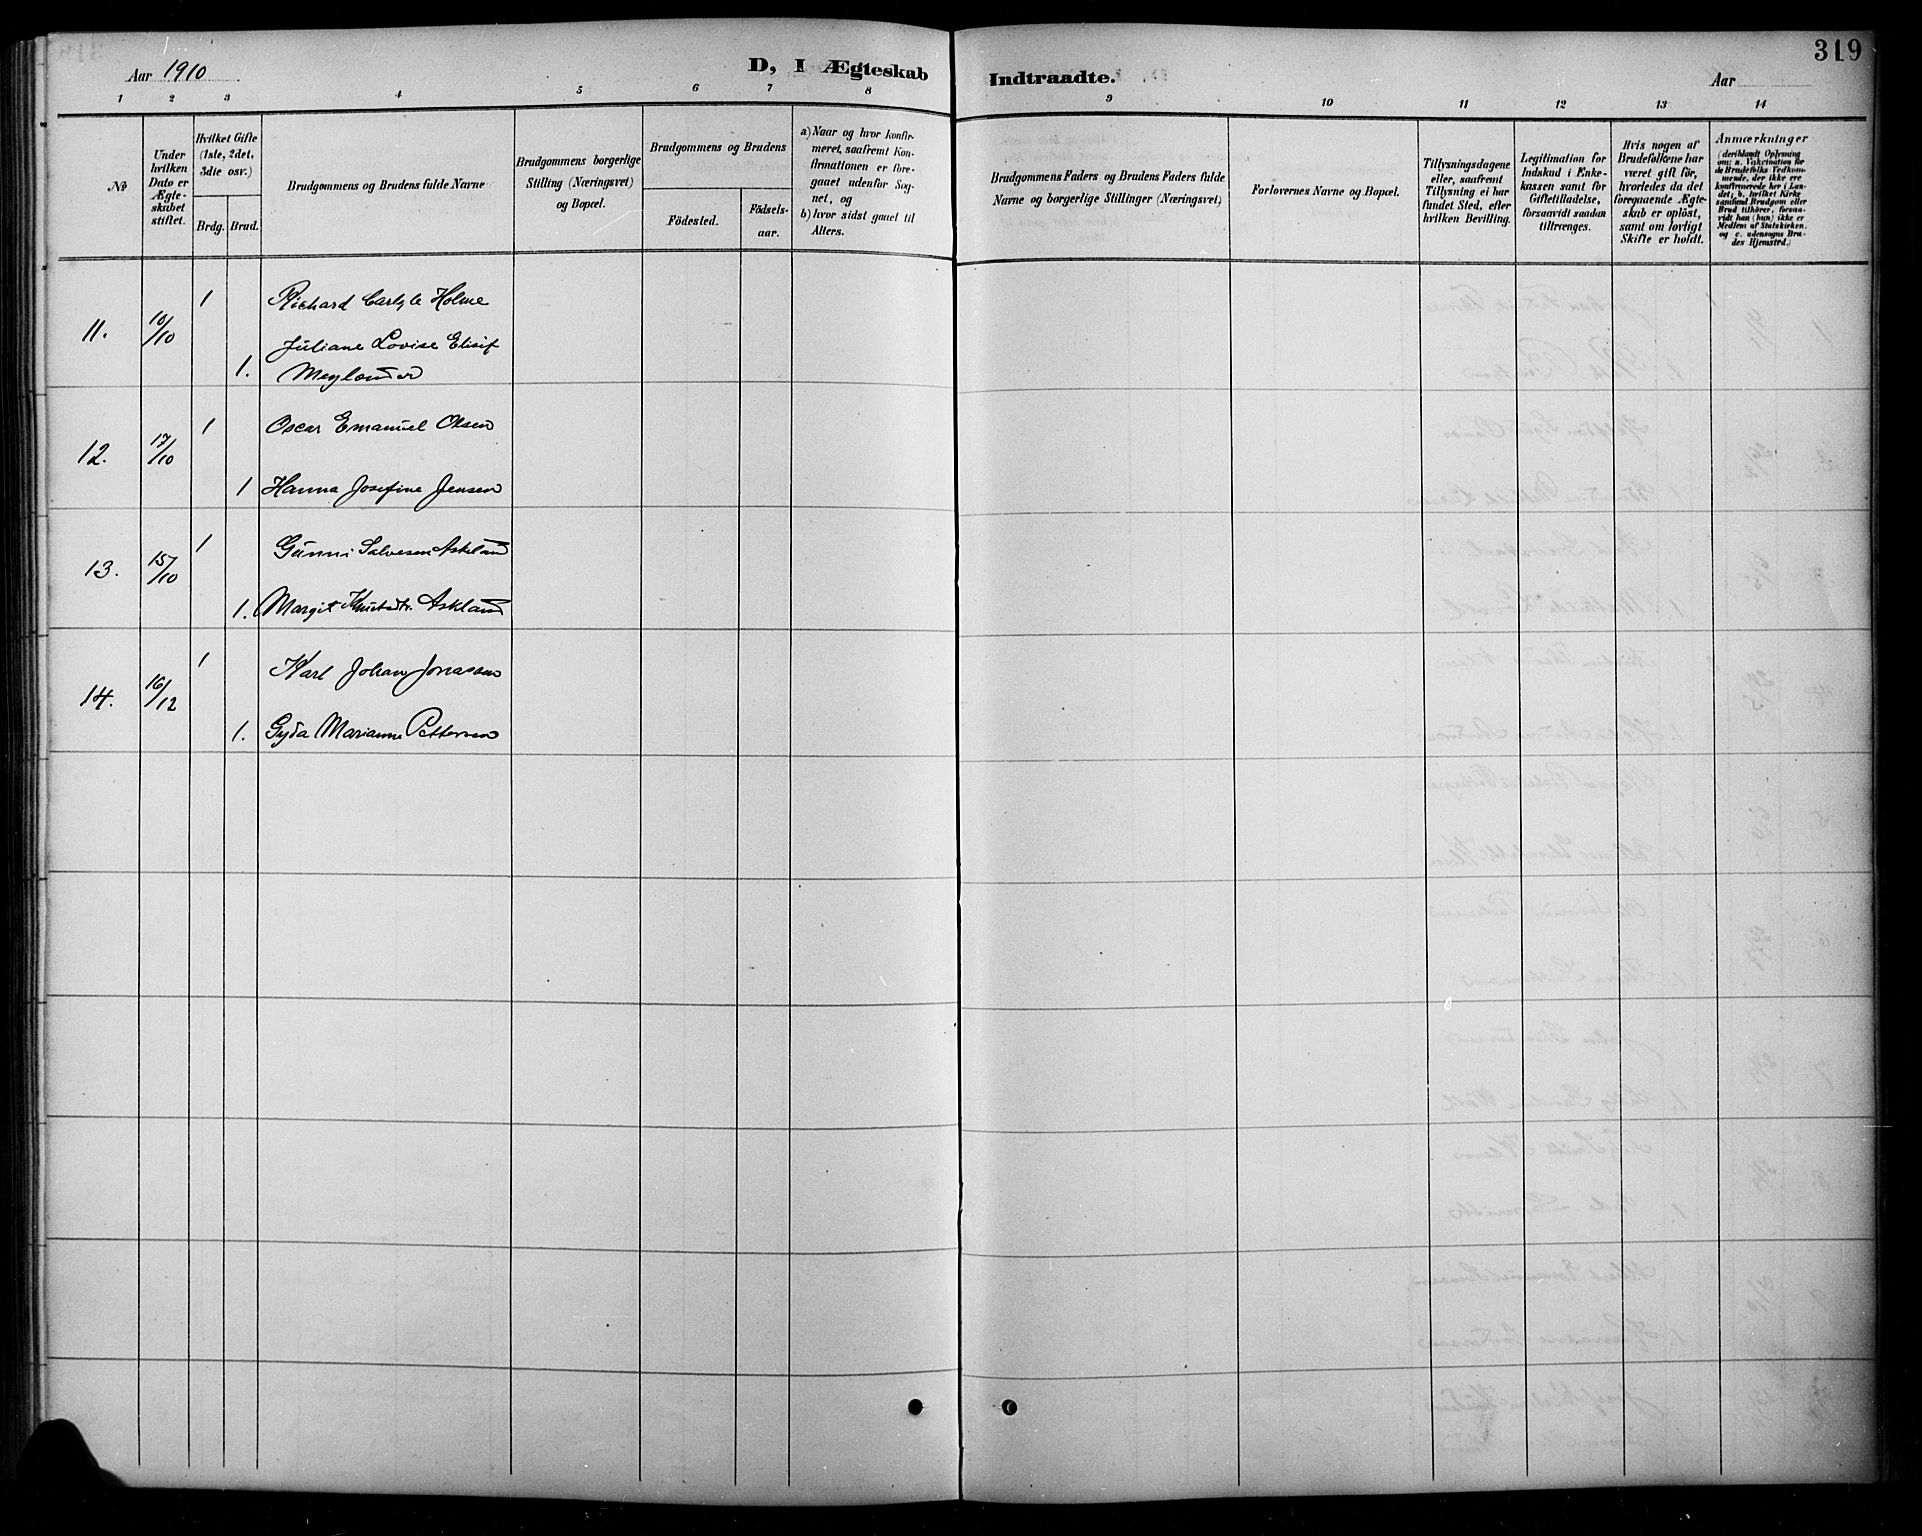 319
Aar 1910
D, I Ægteskab Indtraadte.
Aar
1 2 3 4 5 6 7 8 9 10 11 12 13 14
No
Under hvilken Dato er Ægteskabet stiftet.
Hvilket Gifte (1ste, 2det, 3dte osv.)
Brdg. Brud.
Brudgommens og Brudens fulde Navne
Brudgommens borgerlige Stilling (Næringsvei) og Bopæl.
Brudgommens og Brudens
Födested.
Födsels-aar.
a) Naar og hvor konfir-
meret, saafremt Kon-
firmationen er fore-
gaaet udenfor Sog-
net, og
b) hvor sidst gaaet til
Alters.
Brudgommens Faders og Brudens Faders fulde
Navne og borgerlige Stillinger (Næringsvei)
Forlovernes Navne og Bopæl.
Tillysningsdagene
eller, saafremt
Tillysning ei har
fundet Sted, efter
hvilken Bevilling.
Legitimation for
Indskud i Enke-
kassen samt for
Giftetilladelse,
forsaavidt saadan
tiltrænges.
Hvis nogen af
Brudefolkene har
været gift för,
hvorledes da det
foregaaende Ægte-
skab er oplöst,
samt om lovligt
Skifte er holdt.
Anmærkninger
(deriblandt Oplysning
om: a. Vakcination for
de Brudefolks Vedkom-
mende, der ikke ere
konfirmerede her i Lan-
det; b. hvilket Kirke-
samfund Brudgom eller
Brud tilhörer, forsaa-
vidt han (hun) ikke er
Medlem af Statskirken,
og c. udensogns Bru-
des Hjemsted.)
11. 10/10 1 Richard Carlyle Holme
1. Juliane Lovise Elisif
Meylænder
12. 17/10 1 Oscar Emanuel Olsen
1 Hanna Josefine Jensen
13. 15/10 1 Gunni Salvesen Askland
1. Margit Knutsdtr. Askland
14. 16/12 1 Karl Johan Jonassen
1. Gyda Marianne Pettersen